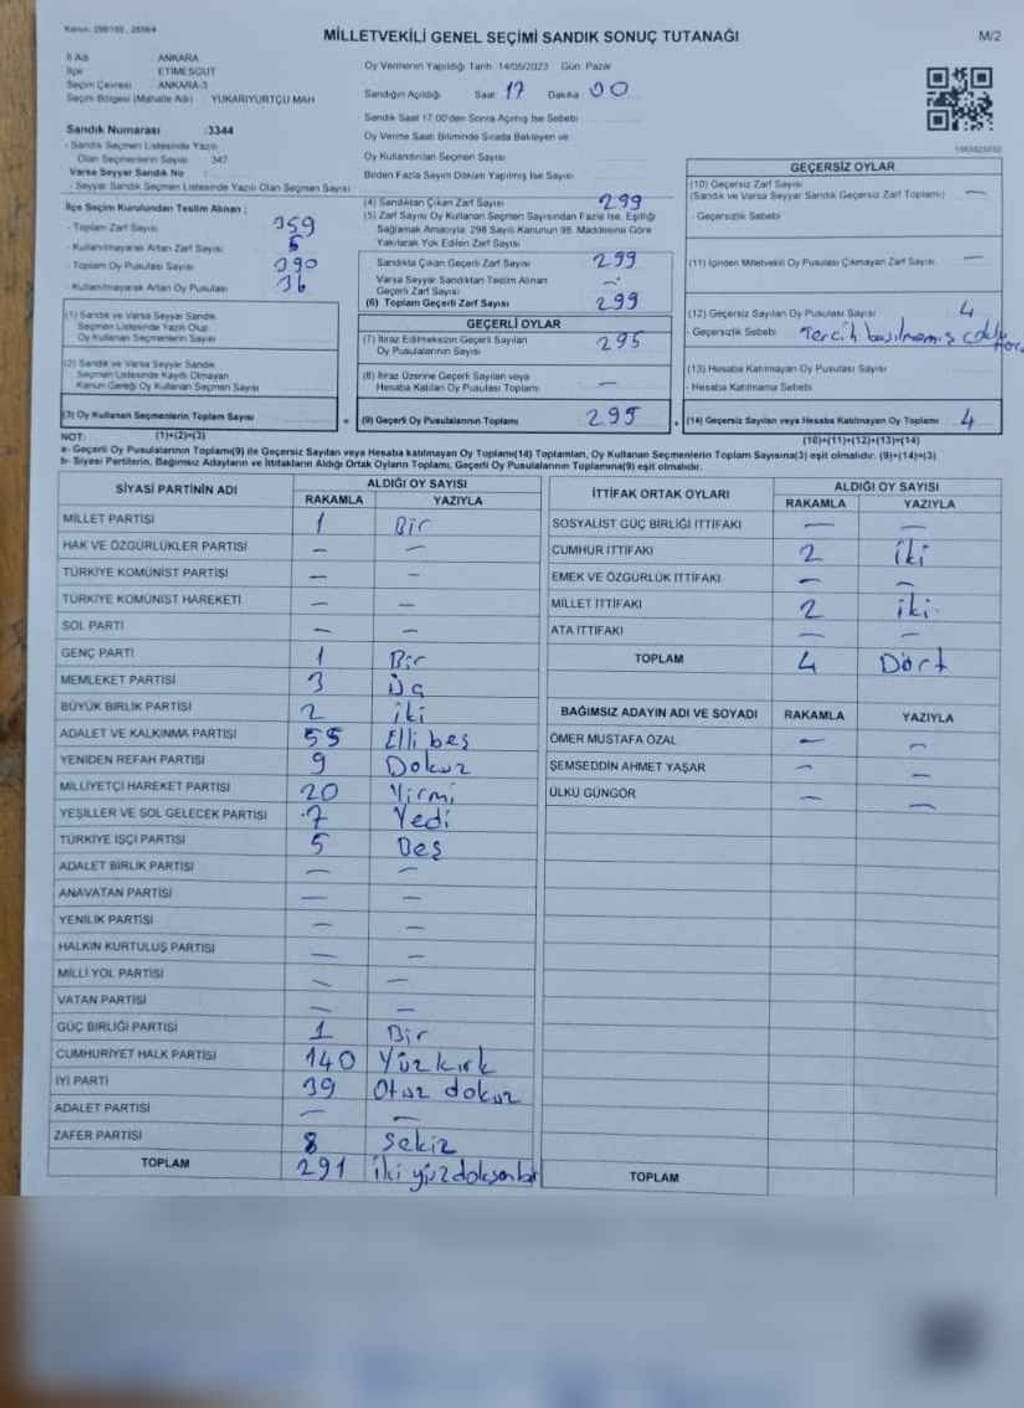 MİLLETVEKİLİ GENEL SEÇİMİ SANDIK SONUÇ TUTANAĞI
M/2
İl Adı ANKARA
İlçe ETİMESGUT
Seçim Çevresi ANKARA-3
Seçim Bölgesi (Mahalle Adı) YUKARIYURTÇU MAH
Sandık Numarası :3344
- Sandık Seçmen Listesinde Yazılı
Olan Seçmenlerin Sayısı 347
Varsa Seyyar Sandık No :
- Seyyar Sandık Seçmen Listesinde Yazılı Olan Seçmen Sayısı
İlçe Seçim Kurulundan Teslim Alınan :
- Toplam Zarf Sayısı 359
- Kullanılmayarak Artan Zarf Sayısı
- Toplam Oy Pusulası Sayısı 390
- Kullanılmayarak Artan Oy Pusulası 36
(1) Sandık ve Varsa Seyyar Sandık
Seçmen Listesinde Yazılı Olup
Oy Kullanan Seçmenlerin Sayısı
(2) Sandık ve Varsa Seyyar Sandık
Seçmen Listesinde Kayıtlı Olmayan
Kanun Gereği Oy Kullanan Seçmen Sayısı
(3) Oy Kullanan Seçmenlerin Toplam Sayısı
(1)+(2)=(3)
Oy Vermenin Yapıldığı Tarih 14/05/2023 Gün Pazar
Sandığın Açıldığı Saat 17 Dakika 00
Sandık Saat 17.00'den Sonra Açılmış İse Sebebi
Oy Verme Saati Bitiminde Sırada Bekleyen ve
Oy Kullandırılan Seçmen Sayısı
Birden Fazla Sayım Döküm Yapılmış İse Sayısı
(4) Sandıktan Çıkan Zarf Sayısı 299
(5) Zarf Sayısı Oy Kullanan Seçmen Sayısından Fazla İse, Eşitliği
Sağlamak Amacıyla, 298 Sayılı Kanunun 98. Maddesine Göre
Yakılarak Yok Edilen Zarf Sayısı
Sandıkta Çıkan Geçerli Zarf Sayısı 299
Varsa Seyyar Sandıktan Teslim Alınan
Geçerli Zarf Sayısı —
(6) Toplam Geçerli Zarf Sayısı 299
GEÇERLİ OYLAR
(7) İtiraz Edilmeksizin Geçerli Sayılan
Oy Pusulalarının Sayısı 295
(8) İtiraz Üzerine Geçerli Sayılan veya
Hesaba Katılan Oy Pusulası Toplamı —
= (9) Geçerli Oy Pusulalarının Toplamı 295
GEÇERSİZ OYLAR
(10) Geçersiz Zarf Sayısı
(Sandık ve Varsa Seyyar Sandık Geçersiz Zarf Toplamı) —
- Geçersizlik Sebebi
(11) İçinden Milletvekili Oy Pusulası Çıkmayan Zarf Sayısı —
(12) Geçersiz Sayılan Oy Pusulası Sayısı 4
- Geçersizlik Sebebi Tercih basılmamış
(13) Hesaba Katılmayan Oy Pusulası Sayısı
- Hesaba Katılmama Sebebi
+ (14) Geçersiz Sayılan veya Hesaba Katılmayan Oy Toplamı 4
(10)+(11)+(12)+(13)=(14)
NOT:
a- Geçerli Oy Pusulasının Toplamı(9) ile Geçersiz Sayılan veya Hesaba katılmayan Oy Toplamı(14) Toplamları, Oy Kullanan Seçmenlerin Toplam Sayısına(3) eşit olmalıdır. (9)+(14)=(3)
b- Siyasi Partilerin, Bağımsız Adayların ve İttifakların Aldığı Ortak Oyların Toplamı, Geçerli Oy Pusulalarının Toplamına(9) eşit olmalıdır.
SİYASİ PARTİNİN ADI ALDIĞI OY SAYISI
RAKAMLA YAZIYLA
MİLLET PARTİSİ 1 Bir
HAK VE ÖZGÜRLÜKLER PARTİSİ — —
TÜRKİYE KOMÜNİST PARTİSİ — —
TÜRKİYE KOMÜNİST HAREKETİ — —
SOL PARTİ — —
GENÇ PARTİ 1 Bir
MEMLEKET PARTİSİ 3 Üç
BÜYÜK BİRLİK PARTİSİ 2 iki
ADALET VE KALKINMA PARTİSİ 55 Elli beş
YENİDEN REFAH PARTİSİ 9 Dokuz
MİLLİYETÇİ HAREKET PARTİSİ 20 Yirmi
YEŞİLLER VE SOL GELECEK PARTİSİ 7 Yedi
TÜRKİYE İŞÇİ PARTİSİ 5 Beş
ADALET BİRLİK PARTİSİ — —
ANAVATAN PARTİSİ — —
YENİLİK PARTİSİ — —
HALKIN KURTULUŞ PARTİSİ — —
MİLLİ YOL PARTİSİ — —
VATAN PARTİSİ — —
GÜÇ BİRLİĞİ PARTİSİ 1 Bir
CUMHURİYET HALK PARTİSİ 140 Yüz kırk
İYİ PARTİ 39 Otuz dokuz
ADALET PARTİSİ — —
ZAFER PARTİSİ 8 Sekiz
TOPLAM 291 iki yüz doksan bir
İTTİFAK ORTAK OYLARI ALDIĞI OY SAYISI
RAKAMLA YAZIYLA
SOSYALİST GÜÇ BİRLİĞİ İTTİFAKI — —
CUMHUR İTTİFAKI 2 iki
EMEK VE ÖZGÜRLÜK İTTİFAKI — —
MİLLET İTTİFAKI 2 iki
ATA İTTİFAKI — —
TOPLAM 4 Dört
BAĞIMSIZ ADAYIN ADI VE SOYADI RAKAMLA YAZIYLA
ÖMER MUSTAFA ÖZAL — —
ŞEMSEDDİN AHMET YAŞAR — —
ÜLKÜ GÜNGÖR — —
TOPLAM